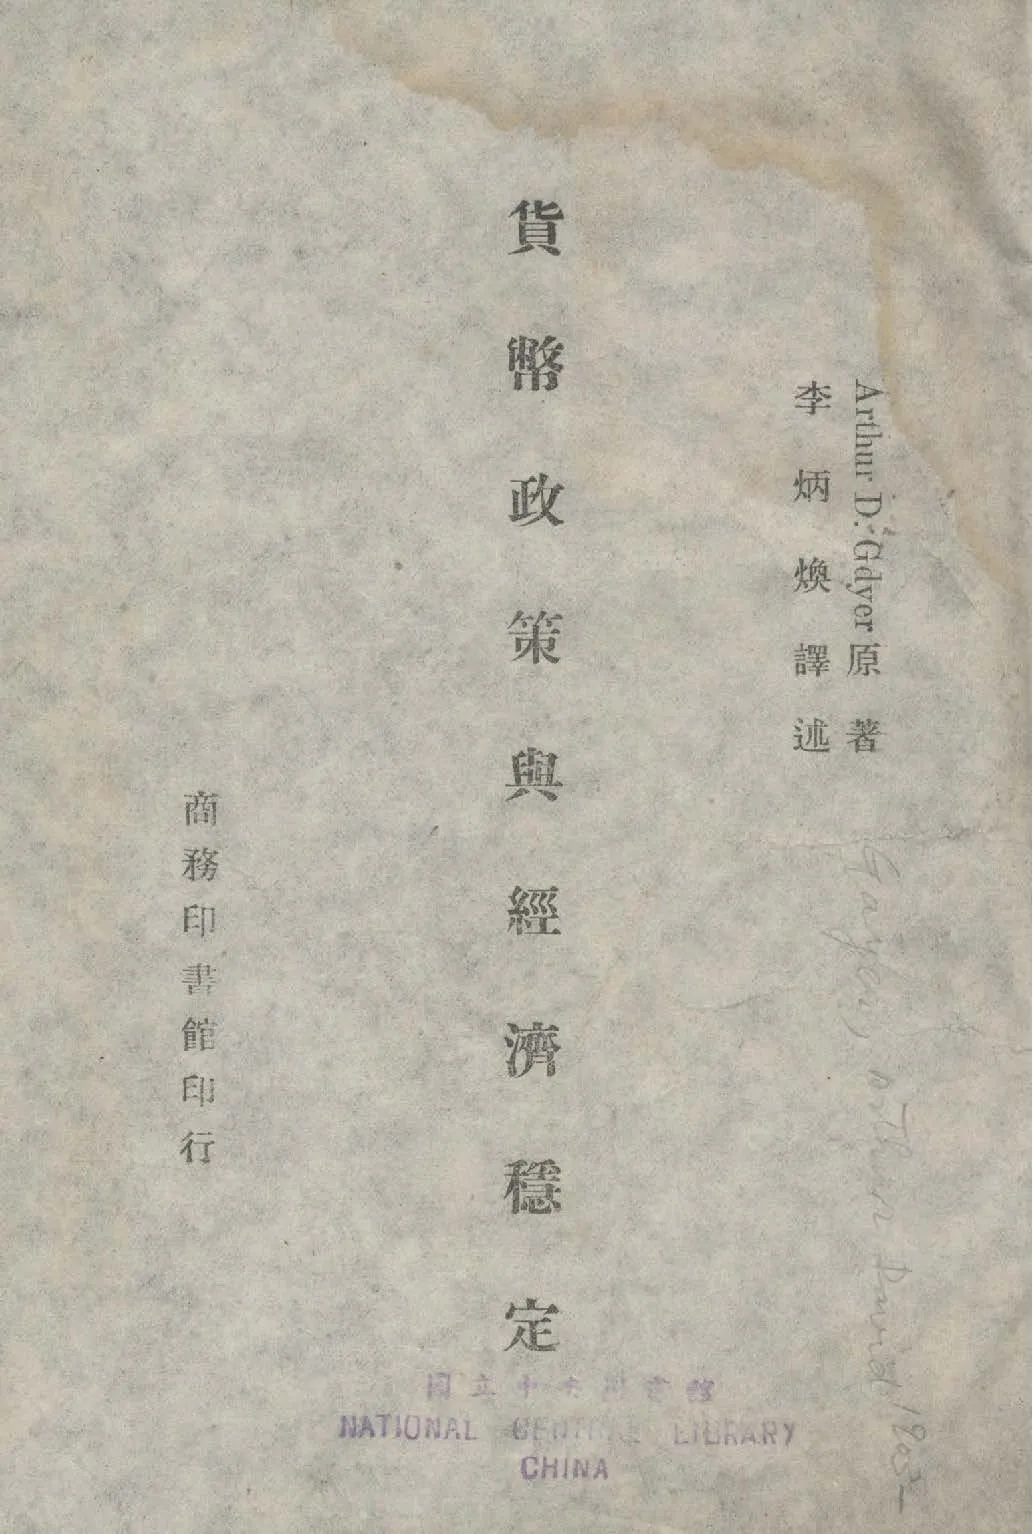 Arthur D. Gdyer 原著
李炳煥譯述
貨幣政策與經濟穩定
商務印書館印行
國立中央圖書館
NATIONAL CENTRAL LIBRARY
CHINA
Gayer, Arthur David, 1903–